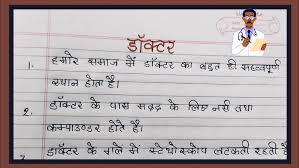 डॉक्टर
1. हमारे समाज में डॉक्टर का बहुत ही महत्वपूर्ण
स्थान होता है।
2. डॉक्टर के पास मदद के लिए नर्स तथा
कम्पाउण्डर होते हैं।
डॉक्टर के गले में स्टेथोस्कोप लटकती रहती है